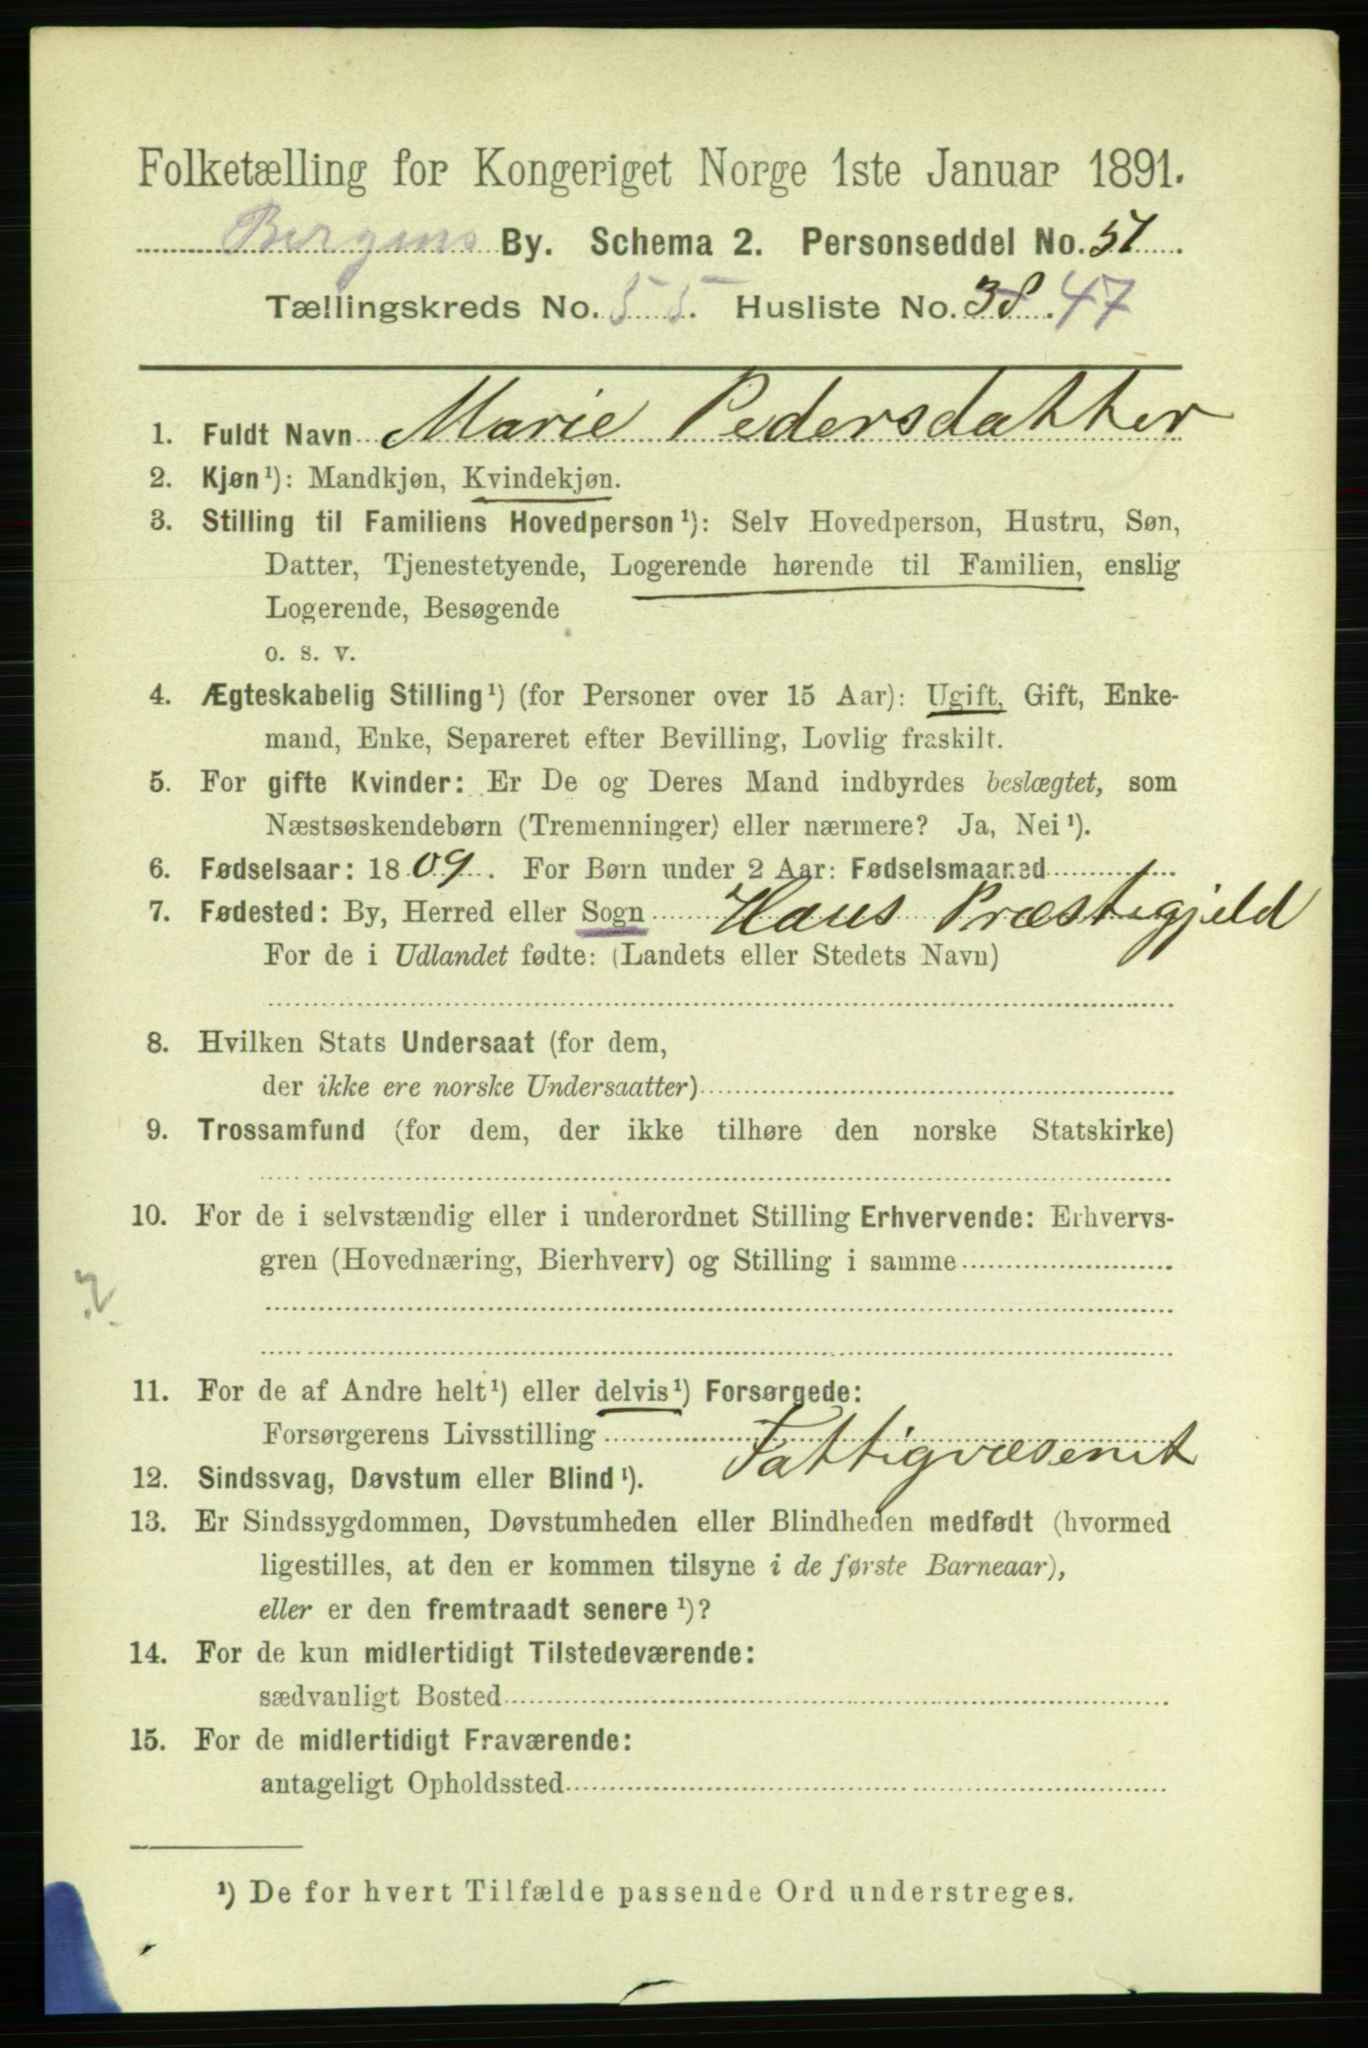 Folketælling for Kongeriget Norge 1ste Januar 1891.
Bergens By. Schema 2. Personseddel No. 51
Tællingskreds No. 55. Husliste No. 38. 47
1. Fuldt Navn Marie Pedersdatter
2. Kjøn¹): Mandkjøn, Kvindekjøn.
3. Stilling til Familiens Hovedperson¹): Selv Hovedperson, Hustru, Søn,
Datter, Tjenestetyende, Logerende hørende til Familien, enslig
Logerende, Besøgende
o. s. v.
4. Ægteskabelig Stilling¹) (for Personer over 15 Aar): Ugift, Gift, Enke-
mand, Enke, Separeret efter Bevilling, Lovlig fraskilt.
5. For gifte Kvinder: Er De og Deres Mand indbyrdes beslægtet, som
Næstsøskendebørn (Tremenninger) eller nærmere? Ja, Nei¹).
6. Fødselsaar: 1809. For Børn under 2 Aar: Fødselsmaaned
7. Fødested: By, Herred eller Sogn Haus Præstegjeld
For de i Udlandet fødte: (Landets eller Stedets Navn)
8. Hvilken Stats Undersaat (for dem,
der ikke ere norske Undersaatter)
9. Trossamfund (for dem, der ikke tilhøre den norske Statskirke)
10. For de i selvstændig eller i underordnet Stilling Erhvervende: Erhvervs-
gren (Hovednæring, Bierhverv) og Stilling i samme
?
11. For de af Andre helt¹) eller delvis¹) Forsørgede:
Forsørgerens Livsstilling Fattigvæsenet
12. Sindssvag, Døvstum eller Blind¹).
13. Er Sindssygdommen, Døvstumheden eller Blindheden medfødt (hvormed
ligestilles, at den er kommen tilsyne i de første Barneaar),
eller er den fremtraadt senere¹)?
14. For de kun midlertidigt Tilstedeværende:
sædvanligt Bosted
15. For de midlertidigt Fraværende:
antageligt Opholdssted
¹) De for hvert Tilfælde passende Ord understreges.